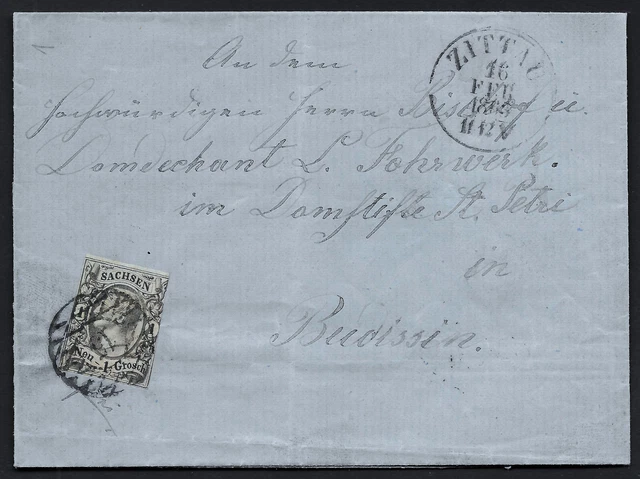 1
ZITTAU
16
FEB
1863
An dem
Hochwürdigen Herrn Bischof u.
Domdechant L. Fohrwerk.
im Domstifte St. Petri
in
Budissin.
SACHSEN
1 1
Neu - 1 - Grosch